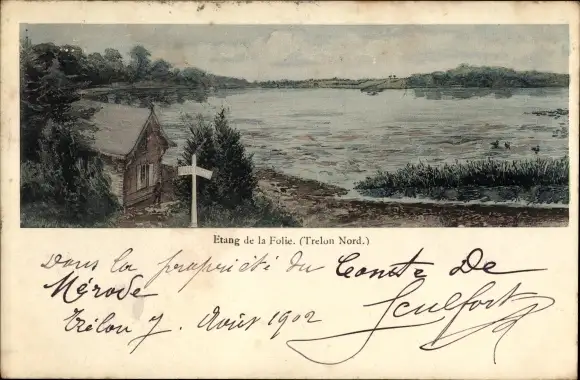 Etang de la Folie. (Trelon Nord.)
Dans la propriété du Comte de
Mérode
Trélon 7. Août 1902